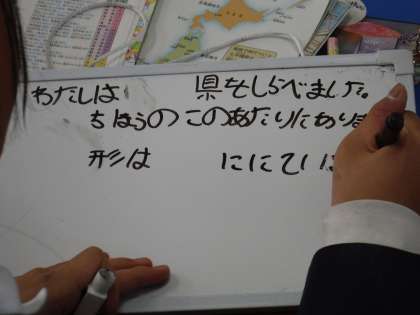 わたしは 県をしらべました。
ちほうの このあたりにあり
形は ににてい